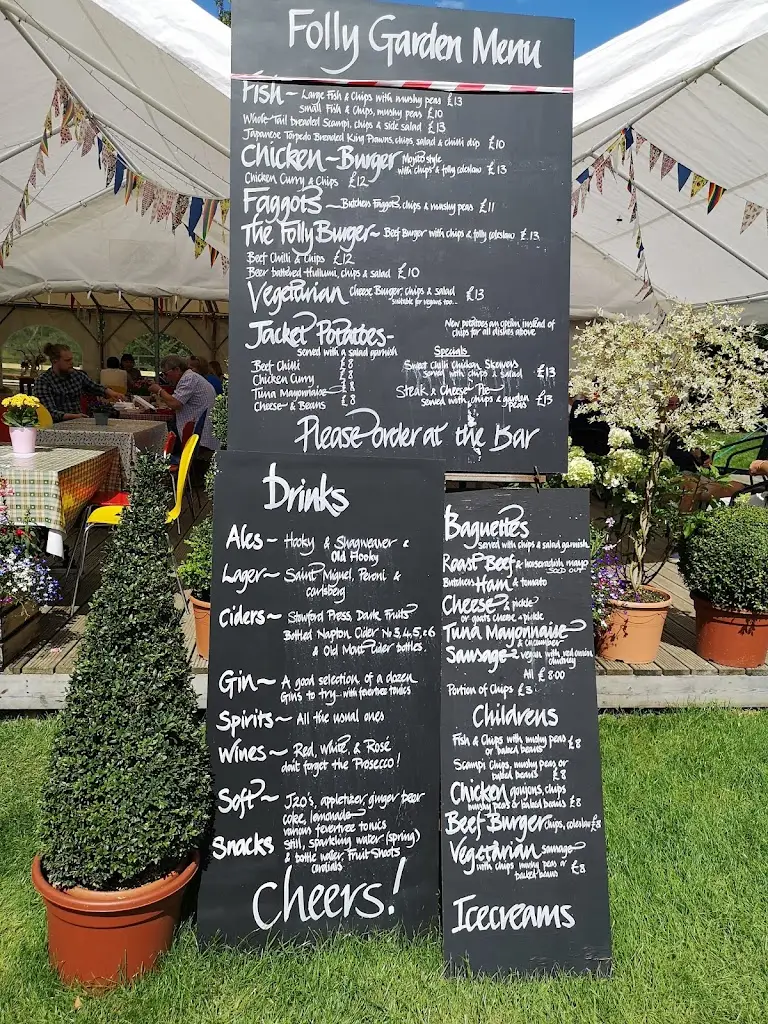 Folly Garden Menu
Fish - Large Fish & Chips with mushy peas £13
Small Fish & Chips, mushy peas £10
Whole Tail breaded Scampi, chips & side salad £13
Japanese Torpedo Breaded King Prawns, chips, salad & chilli dip £10
Chicken - Burger Mojito style
with chips & folly coleslaw £13
Chicken Curry & Chips £12
Faggots - Butchers Faggots, chips & mushy peas £11
The Folly Burger - Beef Burger with chips & folly coleslaw £13
Beef Chilli & Chips £12
Beer battered Hullumi, chips & salad £10
Vegetarian Cheese Burger, chips & salad £13
Suitable for vegans too...
Jacket Potatoes -
served with a salad garnish
Beef Chilli £8
Chicken Curry £8
Tuna Mayonnaise £8
Cheese & Beans £8
New potatoes an option instead of
chips for all dishes above
Specials
Sweet Chilli Chicken Skewers
served with chips & salad £13
Steak & Cheese Pie
served with chips & garden peas £13
Please order at the Bar
Drinks
Ales ~ Hooky & Shagweaver &
Old Hooky
Lager ~ Saint Miguel, Peroni &
carlsberg
Ciders ~ Stowford Press, Dark Fruits
Bottled Napton Cider No 3,4,5,&6
& Old Mout Cider bottles.
Gin ~ A good selection of a dozen
Gins to try - with fevertree tonics
Spirits ~ All the usual ones
Wines ~ Red, white, & Rosé
don't forget the Prosecco!
Soft ~ J20's, appletizer, ginger beer
coke, lemonade
various fevertree tonics
still, sparkling water (spring)
Snacks & bottle water, Fruit Shoots
cordials
Cheers!
Baguettes
served with chips & salad garnish
Roast Beef & horseradish mayo
SOLD OUT
Butchers Ham & tomato
Cheese & pickle
or goats cheese & pickle
Tuna Mayonnaise
& cucumber
Sausage vegan with red onion
chutney
All £8.00
Portion of Chips £3
Childrens
Fish & Chips with mushy peas £8
or baked beans
Scampi Chips, mushy peas or
baked beans £8
Chicken goujons, chips
mushy peas or baked beans £8
Beef Burger chips, coleslaw £8
Vegetarian sausage
with chips mushy peas or £8
baked beans
Icecreams